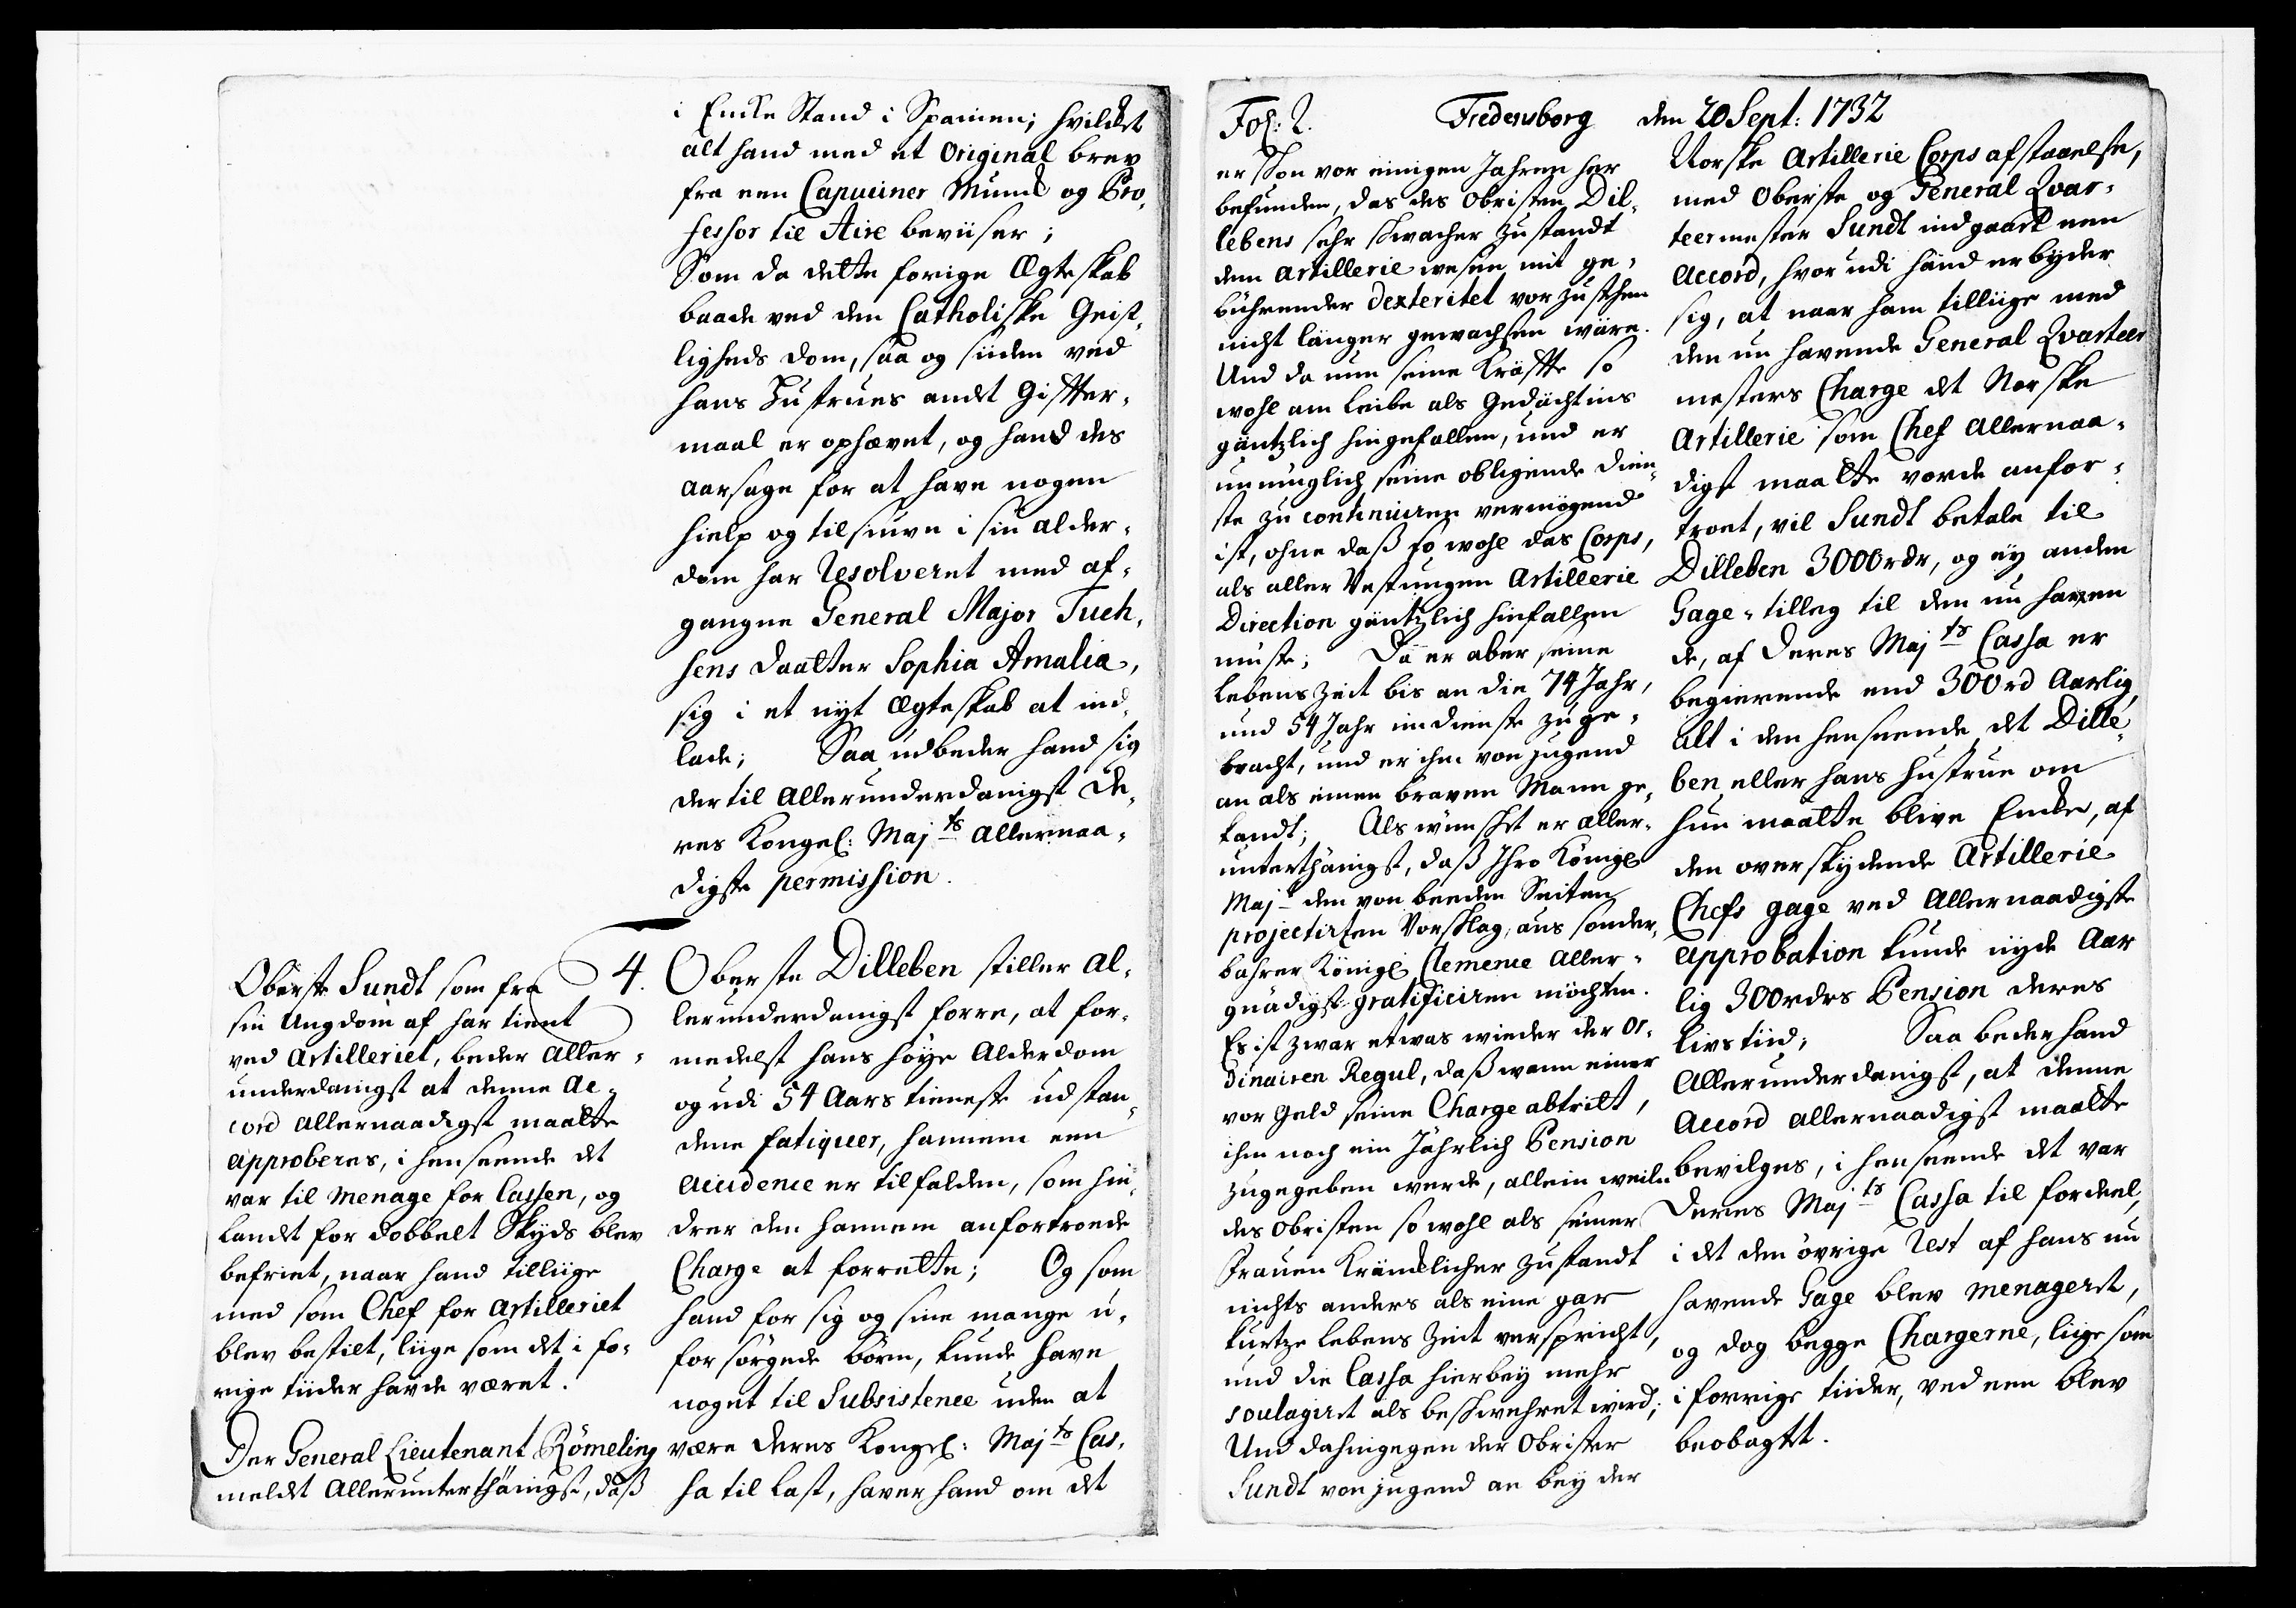 i Encke Stand i Spanien; hvilcket
alt hand med et Original brev
fra een Capuciner Munck og Pro-
fessor til Aire beviiser;
Som da dette forige Ægteskab
baade ved den Catholiske Geist-
ligheds dom, saa og siiden ved
hans Hustrues andet Gifter-
maal er ophævet, og hand des
aarsage for at have nogen
hielp og tilsiuvn i sin alder-
dom har Resolveret med af-
gangne General Major Tuch-
sens daatter Sophia Amalia,
sig i et nyt Ægteskab at ind-
lade; Saa udbeder hand sig
dertil allerunderdanigst De-
res Kongel: Maj.ts allernaa-
digste permission.
Oberste Sundt som fra
sin Ungdom af har tient
ved Artilleriet, beder aller-
underdanigst at denne Ac-
cord allernaadigst maatte
approberes, i henseende det
var til Menage for Cassen, og
landet for dobbelt Skyds blev
befriet, naar hand tilliige
med som Chef for Artilleriet
blev bestilt, liige som det i fo-
rige tiider havde været.
Der General Lieutenant Römeling
meldet allerunterthänigst, daß
4. Oberste Dilleben stiller al-
lerunderdanigst forre, at for-
medelst hans høye Alderdom
og udi 54 Aars tieneste udstan-
dene fatiquer, hannem een
accidence er tilfalden, som hin-
drer den hannem anfortroede
Charge at forrette; Og som
hand for sig og sine mange u-
forsørgede børn, kunde have
noget til Subsistence uden at
være Deres Kongel: Maj.ts Cas-
sa til last, haver hand om det
Fol: 2. Fredensborg den 20 Sept: 1732
er schon vor einigen Jahren her
befunden, das des Obristen Dil-
lebens sehr schwacher Zustandt
dem Artillerie wesen mit ge-
bührender Dexteritet vorzustehen
nicht länger gewachsen wäre.
Und da nun seine Kräffte so
wohl am Leibe als Gedächtnis
gäntzlich hingefallen, und er
unmüglich seine obligende Dien-
ste zu continuiren vermögend
ist, ohne daß so wohl das Corps,
als aller Vestungen Artillerie
Direction gäntzlich hinfallen
muste; Da er aber seine
Lebens Zeit bis an die 74 Jahr,
und 54 Jahr im Dienste zuge-
bracht, und er ihn von Jugend
an als einen braven Mann ge-
kandt; Als wünschet er aller-
unterthänigst, daß Ihro Königl
Maj.t den von beeden Seiten
projectirten Vorschlag, aus sonder-
bahrer Königl Clemence aller-
gnädigst gratificiren möchten.
Es ist zwar etwas wieder der or-
dinairen Regul, daß wann einer
vor Geld seine Charge abtrit,
ihm noch ein Jährlich Pension
zugegeben werde, allein weilen
des Obristen so wohl als seiner
Frauen Kräncklicher Zustandt
nichts anders als eine gar
kurtze Lebens Zeit verspricht,
und die Cassa hierbey mehr
soulagiret als beschwehret wird;
Und dahingegen der Obrister
Sundt von Jugend an bey der
Norske Artillerie Corps afstaaelse,
med Oberste og General Qvar-
teermester Sundt indgaaet een
Accord, hvor udi hand erbyder
sig, at naar ham tilliige med
den nu havende General Qvarteer
mesters Charge det Norske
Artillerie som Chef allernaa-
digst maatte vorde anfor-
troet, vil Sundt betale til
Dilleben 3000 rdr, og ey anden
Gage-tilleg til den nu haven
de, af Deres Maj.ts Cassa er
begierende end 300 rd aarlig,
alt i den henseende, det Dille-
ben eller hans hustrue om
hun maatte blive Encke, af
den overskydende Artillerie
Chefs gage ved allernaadigste
approbation kunde nyde aar
lig 300 rdrs Pension deres
livs tiid; Saa beder hand
allerunderdanigst, at denne
Accord allernaadigst maatte
bevilges, i henseende det var
Deres Maj.ts Cassa til fordeel,
i det den övrige Rest af hans nu
havende Gage blev menageret,
og dog begge Chargerne, liige som
i forrige tiider, ved een blev
beobagtet.